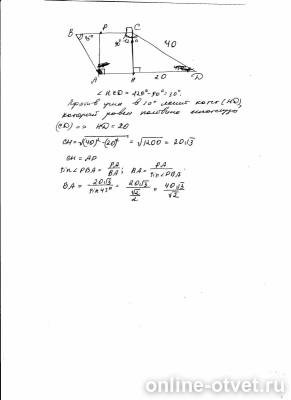 B P C
45° 90° 40
A H 20 D
∠HCD = 120°-90° = 30°.
Против угла в 30° лежит катет (HD),
который равен половине гипотенузы
(CD) => HD = 20
CH = √(40)²-(20)² = √1200 = 20√3
CH = AP
sin∠PBA = PA/BA; BA = PA/sin∠PBA
BA = 20√3/sin45° = 20√3/(√2/2) = 40√3/√2
online-otvet.ru